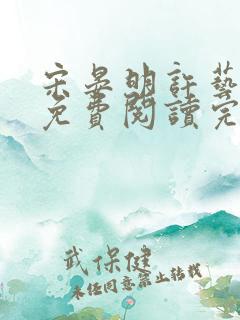 宋晏明許藝
免費閱讀完
武保健
未經同意禁止轉載